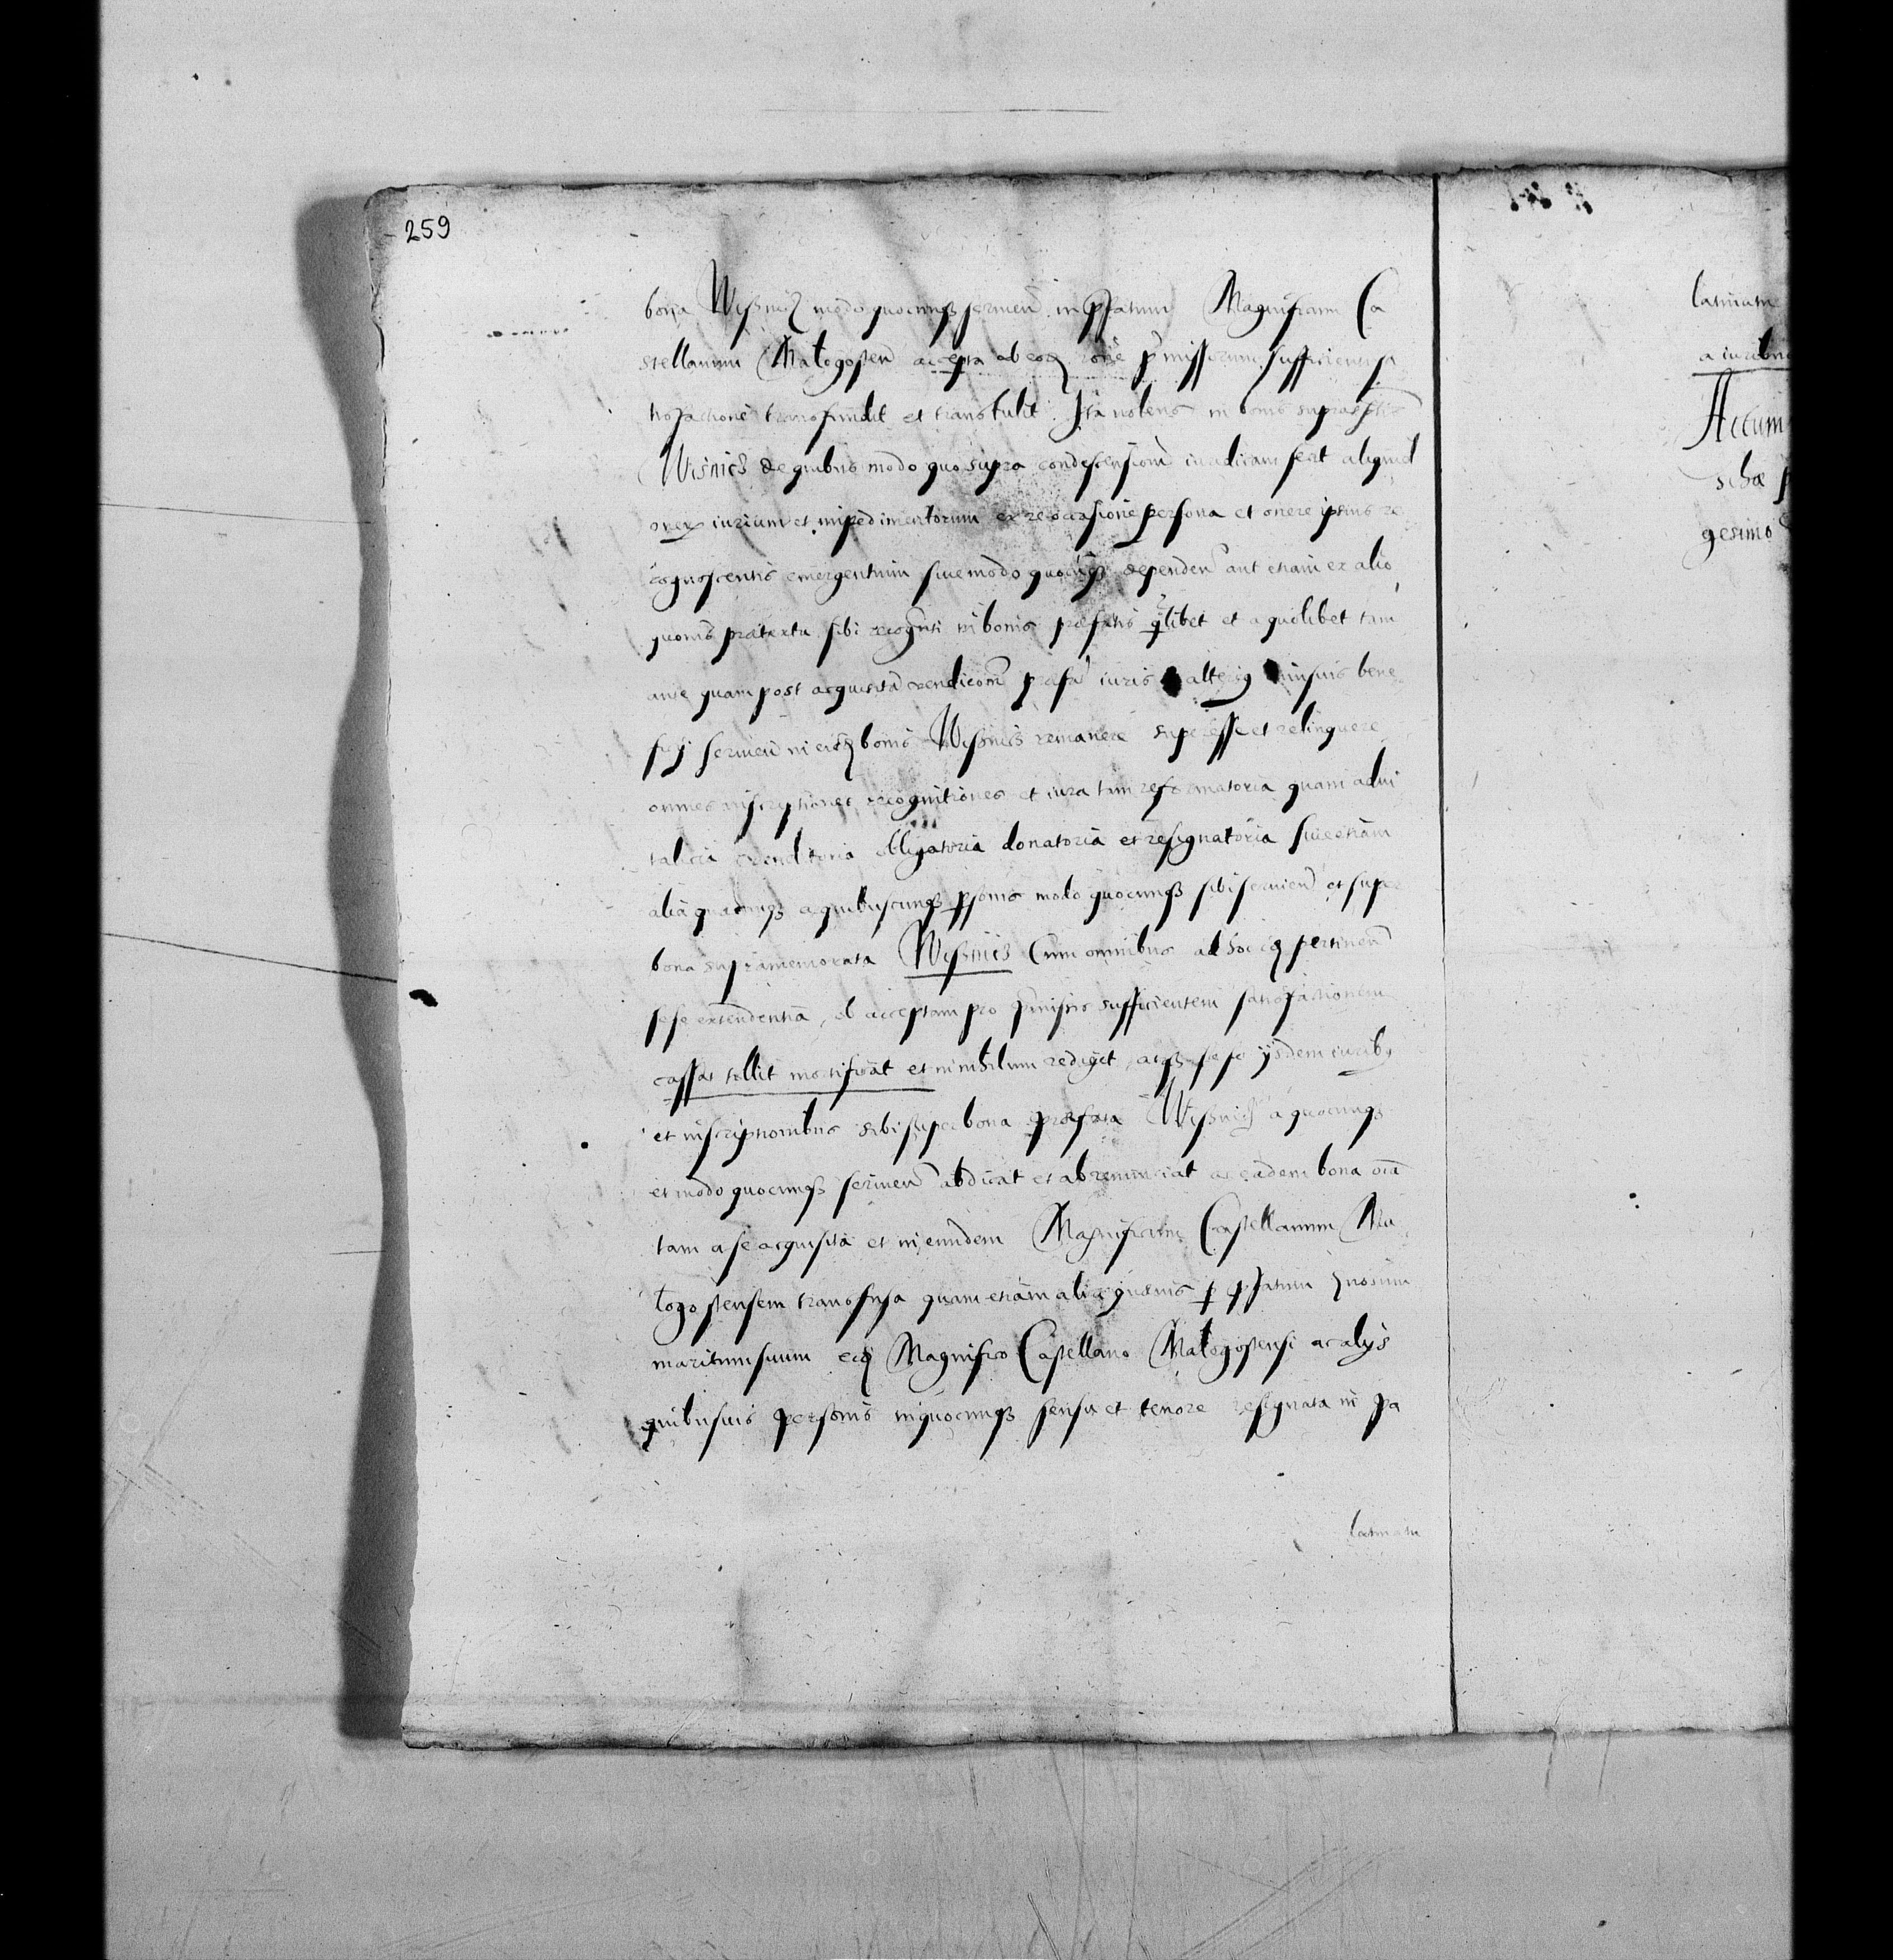 259
bona Wysznicz modo quocunqз servien in pfatum Magnificum Ca
stellanum Małogosten accepta ab eoq rone pmissorum sufficienti sa
tisfactione transfundit et transtulit. Ita nolens in bonis suprascptis
Wisnicz de quibus modo quo supra condescensionē iuridicam fecit aliquid
onex iurium et impedimentorum ex re occasione persona et onere ipsius re
cognoscentis emergentium sive modo quocunqз dependen aut etiam ex alio
quovis prætextu sibi recognti in bonis præfatis qlibet et a quolibet tam
ante quam post acquisitā venditionē præfa iuris alteriq insuis bene
fici servien in eisdē bonis Wysznicz remanere superesse et relinquere
omnes inscriptiones recognitiones et iura tam reformatoria quam advi
talitia venditoria obligatoria donatoria et resignatoria sive etiam
alia quæcunqз a quibuscunqз psonis modo quocunqз sibi servien et super
bona supramemorata Wysznicz Cum omnibus ad hoc pertinen
sese extendentia, ob acceptam pro pmissis sufficientem satisfactionem
cassat tollit mortificat et in nihilum rediget, atqз sese ijsdem iuribq
et inscriptionibus sibi super bona præfata Wysznicz a quocunqз
et modo quocunqз servien abdicat et abrenunciat ac eadem bona oīa
tam a se acquisita et in eundem Magnificum Castellanum Ma
łogostensem transfusa quam etiam alia quævis p pfatum gnosum
maritum suum eidē Magnifico Castellano Małogostensi ac alijs
quibusvis personis in quocunqз sensu et tenore resignata in pa
latinatu
latinatu
a iuribus
Actum
schæ
gesimo